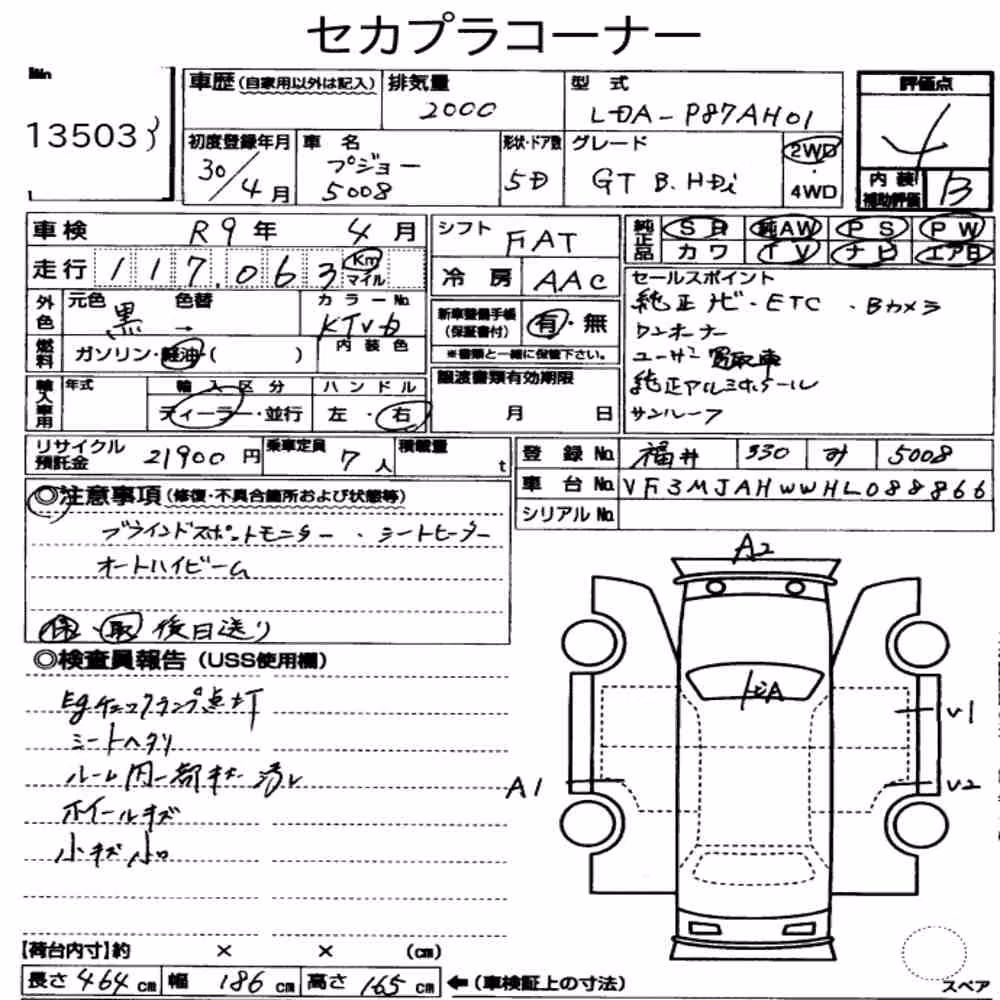 セカプラコーナー
No
13503
車歴 (自家用以外は記入) 排気量 2000 型式 LDA-P87AH01 評価点 4
初度登録年月 30/4月 車名 プジョー 5008 形状・ドア数 5D グレード GT B.HDi 2WD 4WD
内装補助評価 B
車検 R9年 4月 シフト FAT 純正品 SR 純AW PS PW
カワ TV ナビ エアB
走行 117,063 Km マイル 冷房 AAC
外色 元色 黒 色替 → カラーNo. KTV 内装色
新車整備手帳(保証書付) 有・無
※書類と一緒に保管下さい。
燃料 ガソリン・軽油・( )
セールスポイント
純正ナビ・ETC・Bカメラ
ワンオーナー
ユーザー買取車
純正アルミホイール
サンルーフ
輸入車用 年式 輸入区分 ディーラー・並行 ハンドル 左・右
譲渡書類有効期限 月 日
リサイクル預託金 21900円 乗車定員 7人 積載量 t
登録No. 福井 330 す 5008
車台No. VF3MJAHWWHL088866
シリアルNo.
◎注意事項 (修復・不具合箇所および状態等)
ブラインドスポットモニター・シートヒーター
オートハイビーム
保・取 後日送り
◎検査員報告 (USS使用欄)
Egチェックランプ点灯
シートヘタリ
ルーム内一部キズ 汚レ
ホイールキズ
小キズ 小凹
A2
A1
V1
V2
【荷台内寸】約 × × (cm)
長さ 464 cm 幅 186 cm 高さ 165 cm ←(車検証上の寸法)
スペア